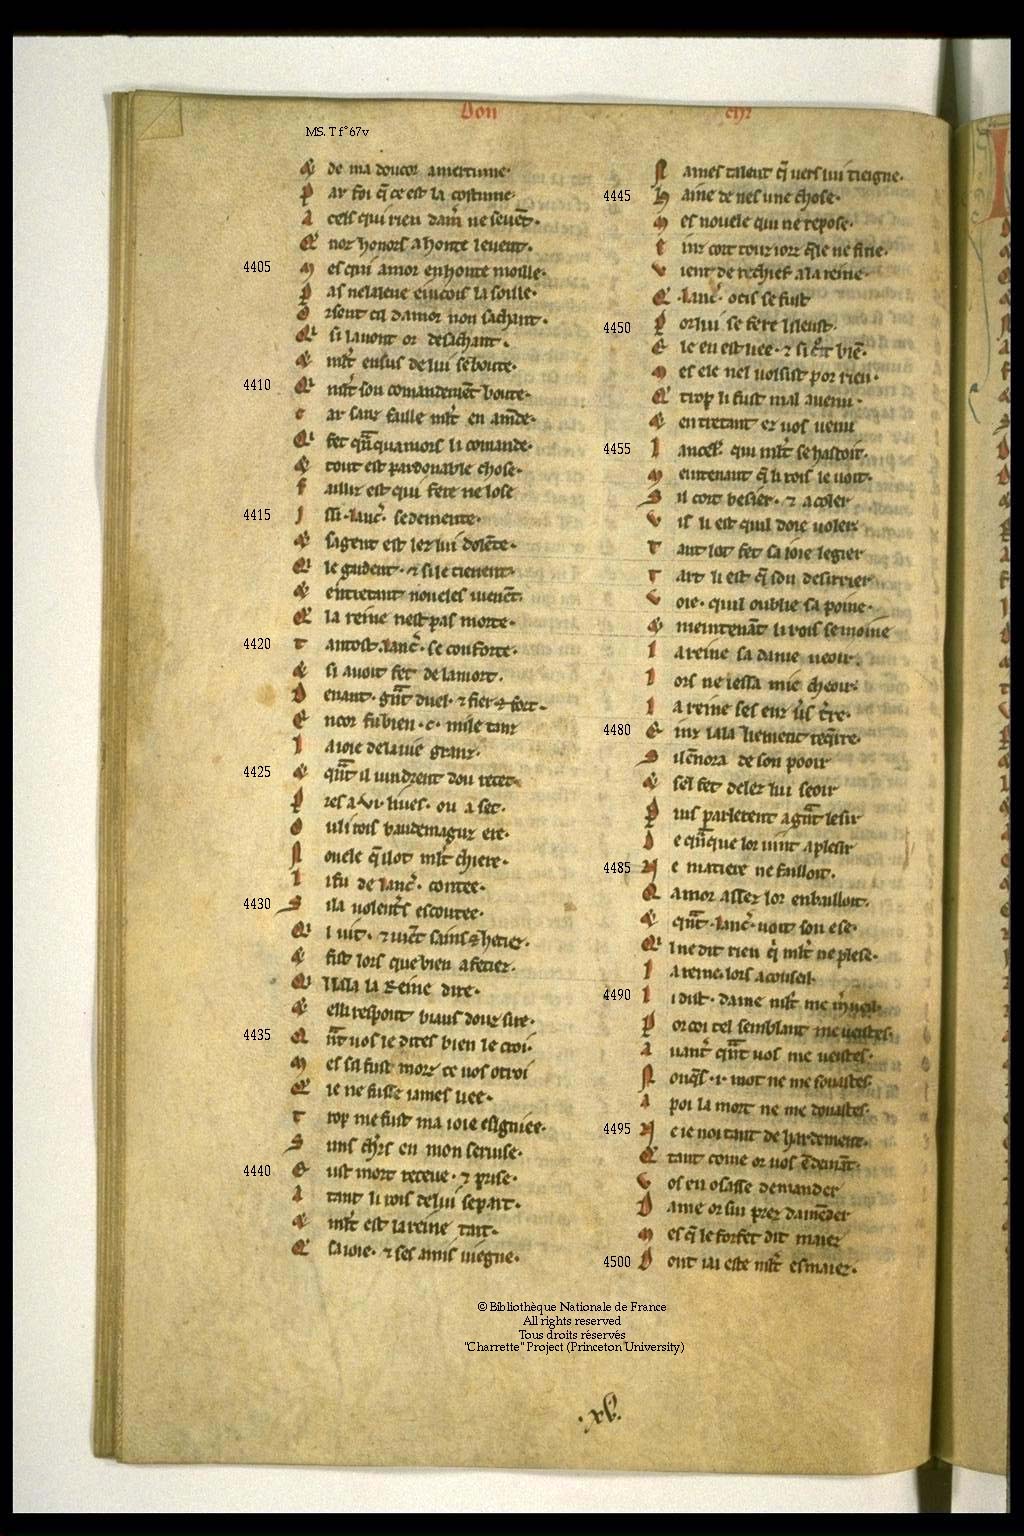 Don
chr
MS. T f° 67v
& de ma doucor amertume·
P ar foi q̃ ce est la costume·
A cels qui rien dam̃ ne seuẽt·
Et nor honors a honte leuent·
4405
M es qui amor en honte moille·
P as nel aleue eincois la soille·
O r sont cil damor non sachant·
Q si lauont or desachant·
& ml̃t ensus de lui se boute·
4410
Q ml̃t son comandemẽt boute·
C ar sanz faille ml̃t en amẽde·
Q fet quãqu amors li comande·
& tout est pardonable chose·
F aillir est qui fere ne lose
4415
I ssi ·lanc̃· se demente·
& sa gent est lez lui dolẽte·
Q le gardent· & si le tienent·
& entretant noueles uienẽt·
Q la reine nest pas morte·
4420
T antost ·lanc̃· se conforte·
& si auoit fet de la mort·
D euant· grãt duel· & fier & fort·
E ncor fu bien ·c· mile tanz
L a ioie de la uie granz·
4425
& quãt il uindrent dou recet
P res a ·vi· liues· ou a set·
O u li rois baudemaguz ere·
N ouele q̃ il ot ml̃t chiere·
L i fu de lanc̃· contee·
4430
S i la uolentẽs escoutee·
Q l uit· & uiẽt sains & hetiez·
& fist lors que bien afetiez·
Q il ala la Reine dire·
& elli respont biaus douz sire·
4435
Q ñt uos le dites bien le croi·
M es sil fust morz ce uos otroi
Q ie ne fusse iames liee·
T rop me fust ma ioie eslignie·
S uns ch̃rs en mon seruise·
4440
E ust mort receue· & prise·
A tant li rois de lui se part·
& ml̃t est la reine tart·
Q sa ioie· & ses amis uiegne·
N ames talent q̃ uers lui tieigne·
4445
H aine de nes une chose·
M es nouele qui ne repose·
E inz cort touz iorz q̃le ne fine·
V ient de rechief a la reine·
Q ·lanc̃· ocis se fust
4450
P or lui se fere li leust·
E le en est liee· & si croit biẽ·
M es ele nel uolsist por rien·
Q trop li fust mal auenu·
& entretant ez uos uenu
4455
L ancel̃· qui ml̃t se hastoit·
M eintenant q̃ li rois le uoit·
S il cort besier· & acoler
V is li est quil doie uoler
T ant lot fet sa ioie legier
T art li est q̃ son desirrier
V oie· quil oublie sa poine·
& meintenãt li rois se moine
L a reine sa dame ueoir·
L ors ne lessa mie cheoir·
L a reine ses eux u̾s t̾re·
4480
E inz lala liement req̃rre·
S il ẽnora de son pooir
& sel fet delez lui seoir
P uis parlerent a grãt lesir
D e quãque lor uint a plesir
4485
N e matiere ne failloit·
Q amor assez lor enbailloit·
& quãt ·lanc̃· uoit son ese·
Q l ne dit rien q̃ ml̃t ne plese·
L a reine· lors a conseil
4490
L i dist· dame ml̃t me m̃ueil·
P or coi tel semblant me ueistes
A uantr̃ quãt uos me ueistes·
N onq̃s ·i· mot ne me sonastes
A poi la mort ne me donastes·
4495
N e ie noi tant de hardement·
Q tant come or uos ẽ demãt·
V os en osasse demander
D ame or sui prez damẽder
M es q̃ le forfet dit maiez
4500
D ont iai este ml̃t esmaiez·
© Bibliothèque Nationale de France
All rights reserved
Tous droits réservés
"Charrette" Project (Princeton University)